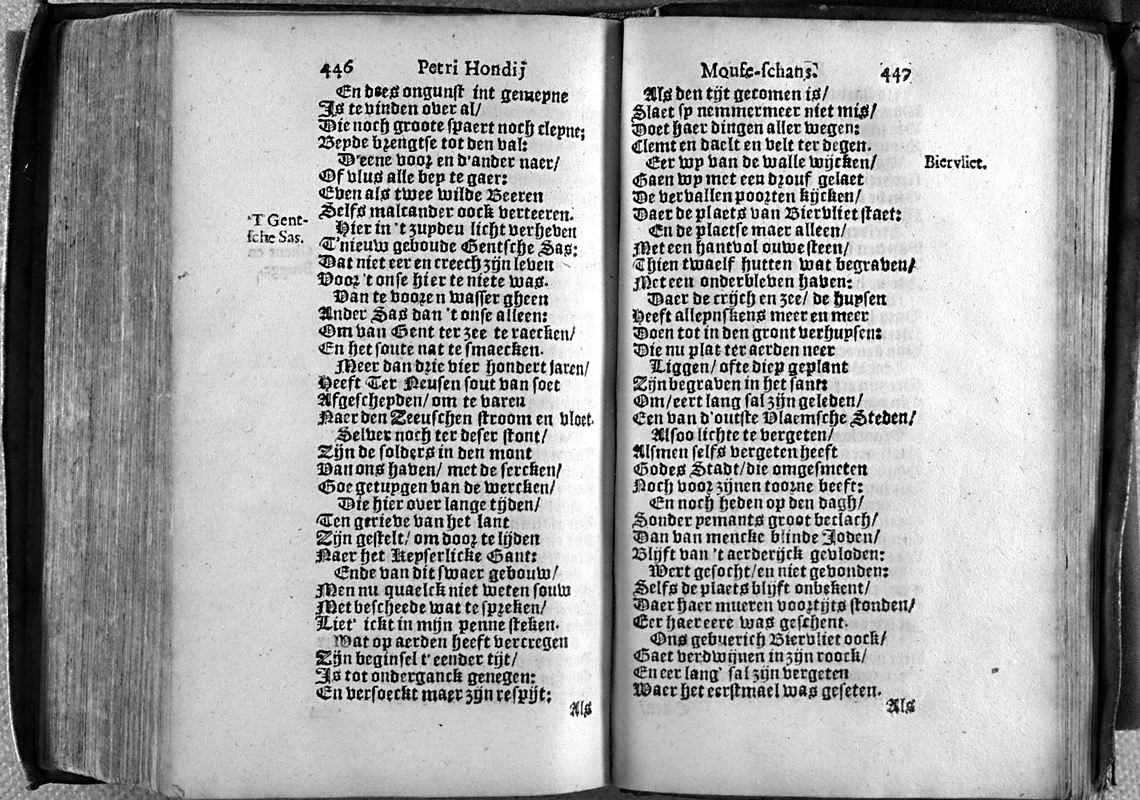 446 Petri Hondij
En dees ongunst int gemeyne
Is te vinden over al/
Die noch groote spaert noch cleyne;
Beyde brengtse tot den val:
D'eene voor en d'ander naer/
Of vlus alle bey te gaer:
Even als twee wilde Beeren
Selfs malcander oock verteeren.
'T Gent-
sche Sas.
Hier in 't zuyden licht verheven
T'nieuw geboude Gentsche Sas:
Dat niet eer en creech zijn leven
Voor 't onse hier te niete was.
Van te vooren wasser gheen
Ander Sas dan 't onse alleen:
Om van Gent ter zee te raecken/
En het soute nat te smaecken.
Meer dan drie vier hondert jaren/
Heeft Ter Neusen sout van soet
Afgescheyden/ om te varen
Naer den Zeeuschen stroom en vloet.
Selver noch ter deser stont/
Zijn de solders in den mont
Van ons haven/ met de sercken/
Goe getuygen van de wercken/
Die hier over lange tijden/
Ten gerieve van het lant
Zijn gestelt/ om door te lijden
Naer het Keyserlicke Gant:
Ende van dit swaer gebouw/
Men nu quaelck niet weten souw
Met bescheede wat te spreken/
Liet' ickt in mijn penne steken.
Wat op aerden heeft vercregen
Zijn beginsel t' eender tijt/
Is tot onderganck genegen:
En versoeckt maer zijn respijt;
Als
Mouse-schans. 447
Als den tijt gecomen is/
Slaet sy nemmermeer niet mis/
Doet haer dingen aller wegen:
Clemt en daelt en velt ter degen.
Eer wy van de walle wijcken/
Biervliet.
Gaen wy met een drouf gelaet
De vervallen poorten kijcken/
Daer de plaets van Biervliet staet:
En de plaetse maer alleen/
Met een hantvol ouwe steen/
Thien twaelf hutten wat begraven/
Met een onderbleven haven:
Daer de crijch en zee/ de huysen
Heeft alleynskens meer en meer
Doen tot in den gront verhuysen:
Die nu plat ter aerden neer
Liggen/ ofte diep geplant
Zijn begraven in het sant:
Om/ eert lang sal zijn geleden/
Een van d'outste Vlaemsche Steden/
Alsoo lichte te vergeten/
Alsmen selfs vergeten heeft
Godes Stadt/ die omgesmeten
Noch voor zijnen toorne beeft:
En noch heden op den dagh/
Sonder yemants groot beclach/
Dan van mencke blinde Joden/
Blijft van 't aerderijck gevloden:
Wert gesocht/ en niet gevonden:
Selfs de plaets blijft onbekent/
Daer haer mueren voortijts stonden/
Eer haer eere was geschent.
Ons gebuerich Biervliet oock/
Gaet verdwijnen in zijn roock/
En eer lang' sal zijn vergeten
Waer het eerstmael was geseten.
Als